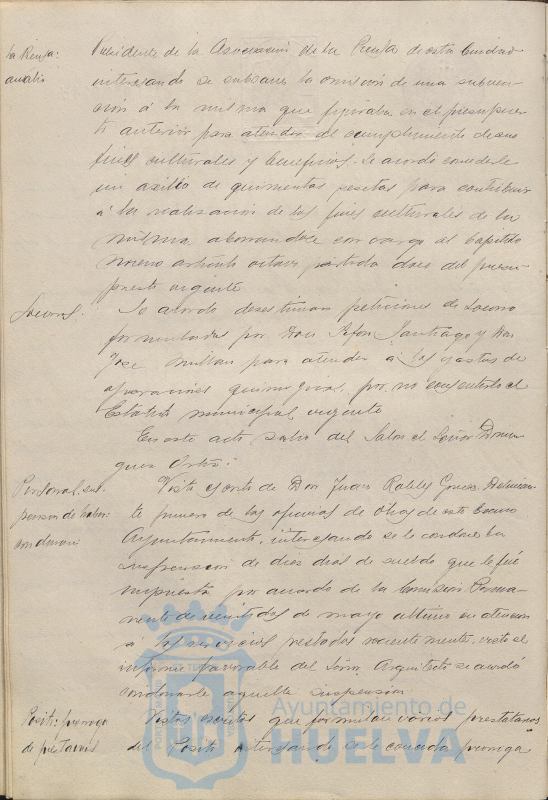 la Prensa:
auxilio
Presidente de la Asociación de la Prensa de esta Ciudad
interesando se subsane la omisión de una subven-
ción á la misma que figuraba en el presupues-
to anterior para atender al cumplimiento de sus
fines culturales y beneficos. Se acordó concederle
un auxilio de quinientas pesetas para contribuir
á la realización de los fines culturales de la
misma abonandose con cargo al Capitulo
noveno articulo octavo partida doce del presu-
puesto vigente
Socorros:
Se acordó desestimar peticiones de Socorro
formuladas por Don Santiago y Don
José Millan para atender a los gastos de
operaciones quirurgicas, por no consentirlo el
Estatuto municipal vigente
En este acto salio del Salon el Señor Domin-
guez Ortiz:
Personal, sus-
pension de haber
condonacion
Visto escrito de Don Juan Robles Gomez Delinean-
te primero de las oficinas de Obras de este Excmo
Ayuntamiento, interesando se le condone la
suspension de diez dias de sueldo que le fué
impuesta por acuerdo de la Comision Perma-
nente de veintidos de mayo ultimo en atencion
á los servicios prestados recientemente, visto el
informe favorable del Señor Arquitecto se acordó
condonarle aquella suspensión.
Posito: prorroga
de prestamos
Vistos escritos que formulan varios prestatarios
del Posito interesando se les conceda prorroga
PORTUS MARIS
Ayuntamiento de
HUELVA